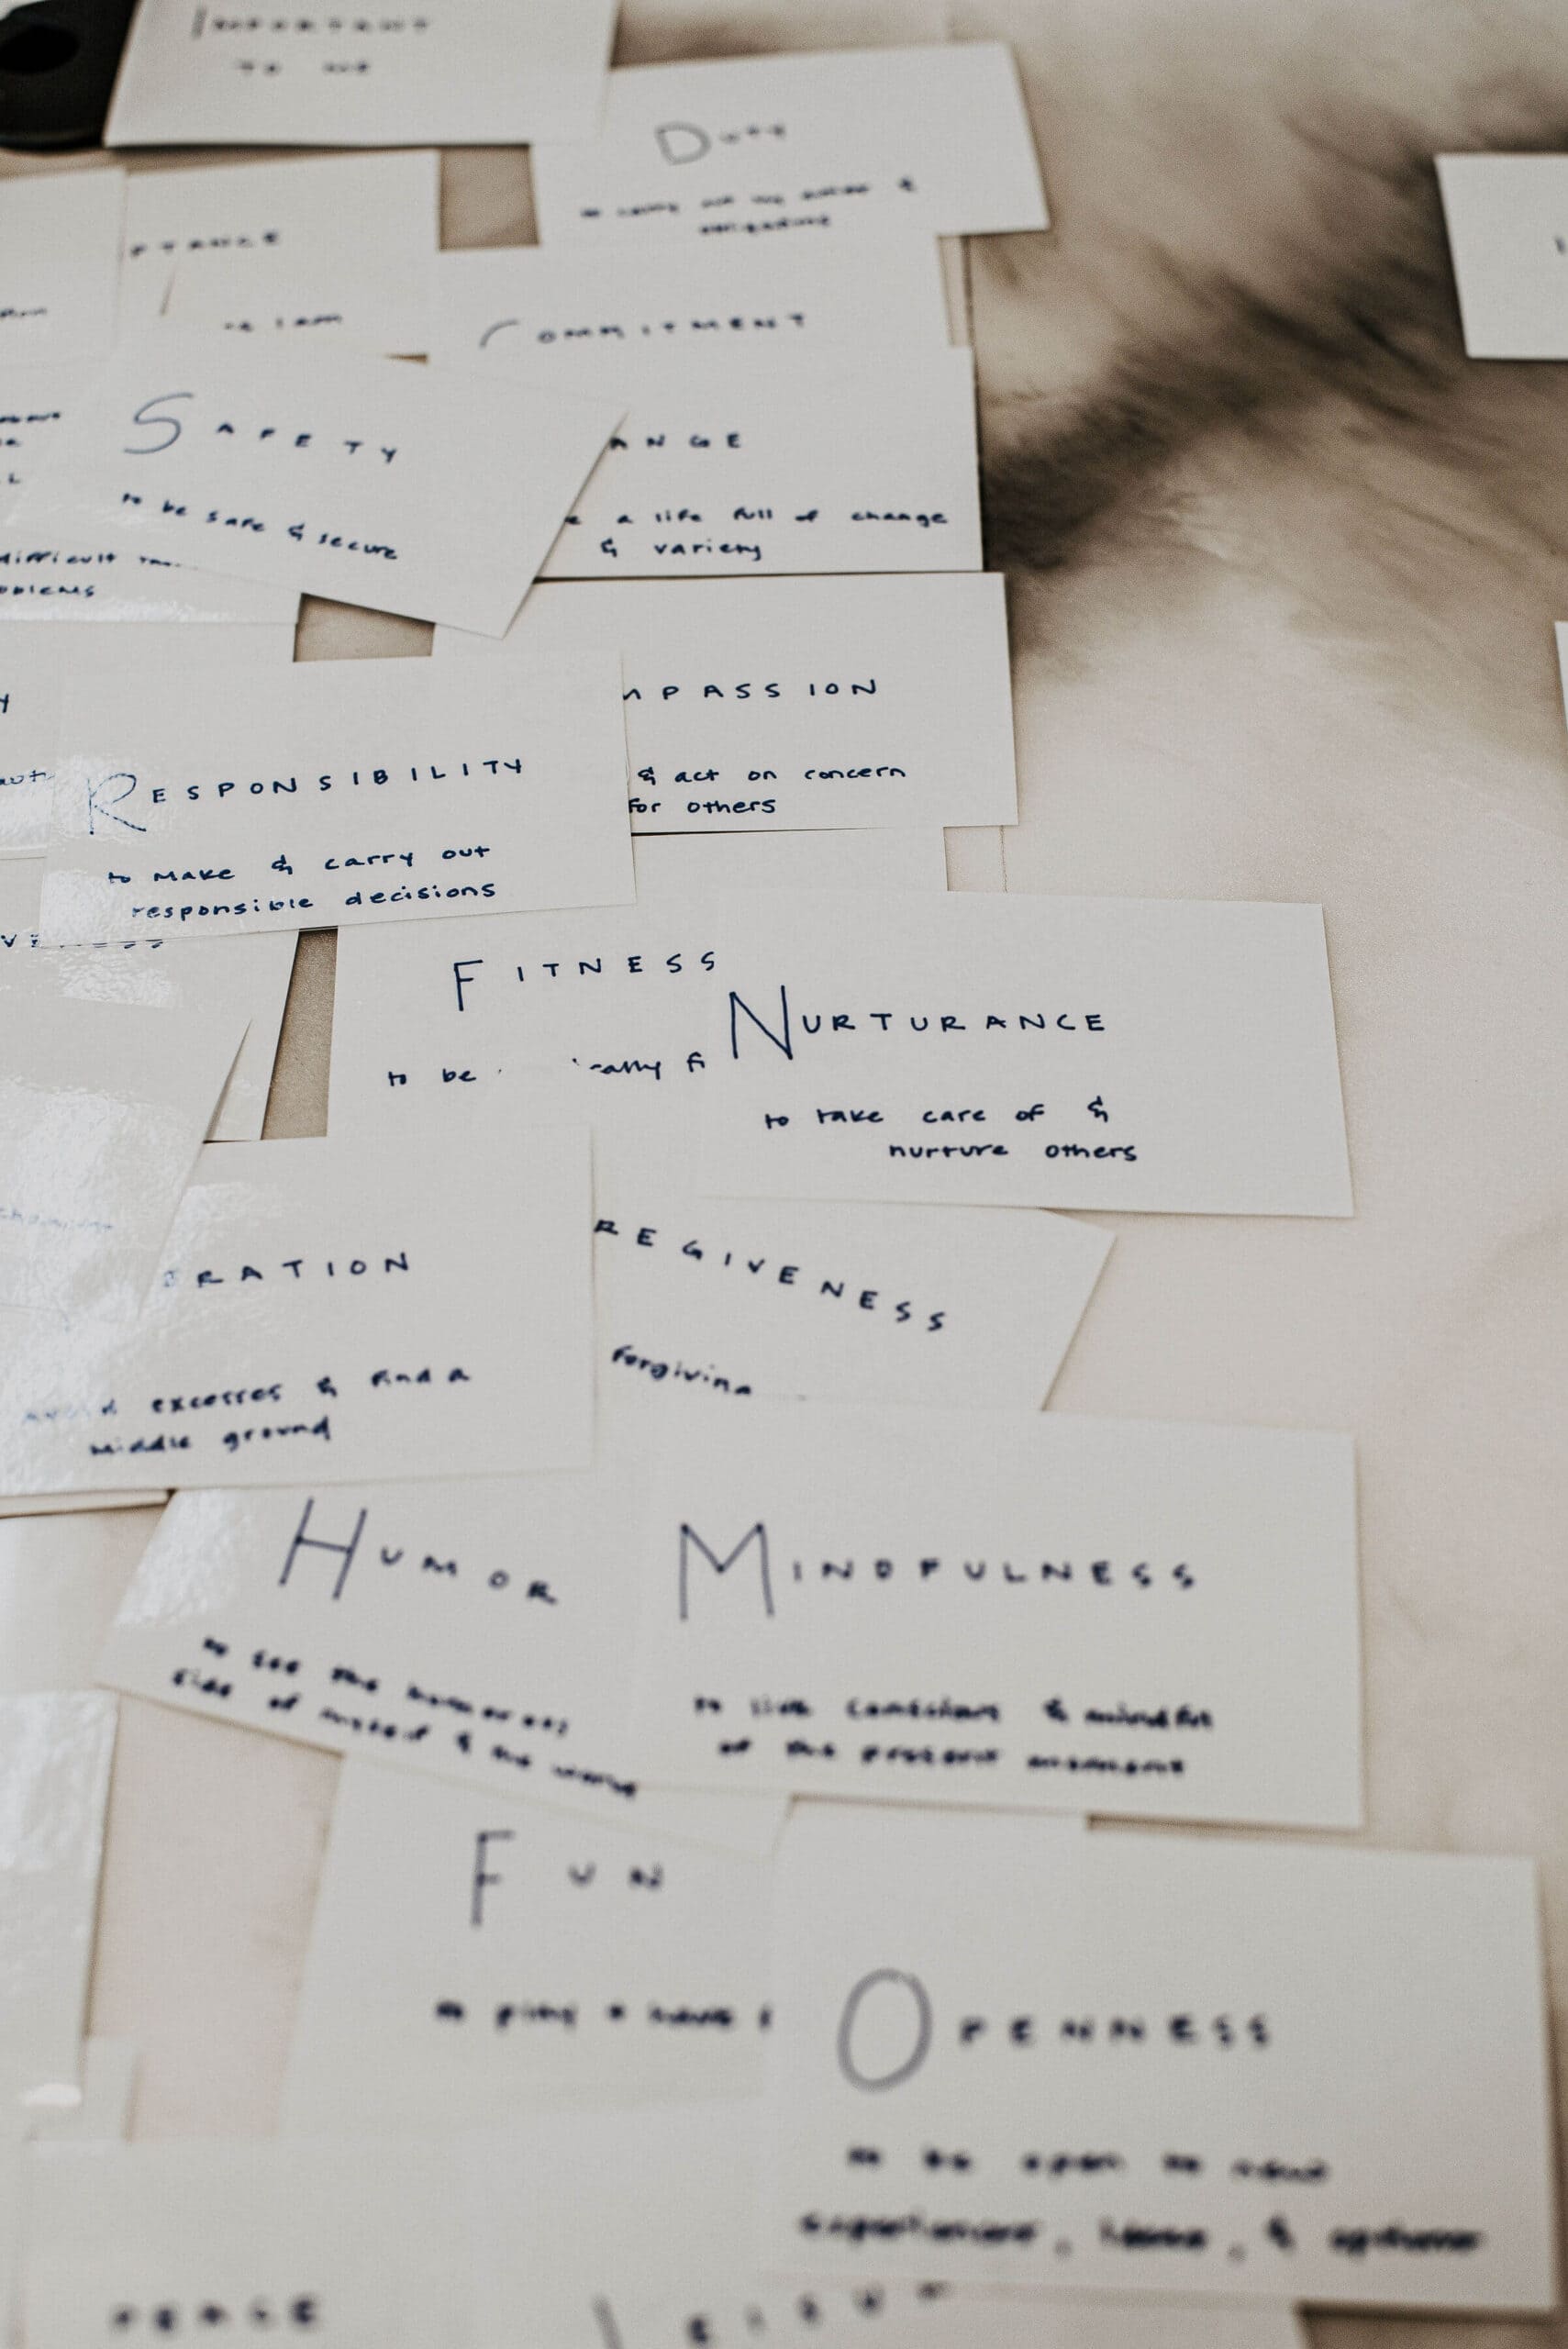 IMPORTANT
TO ME
DUTY
to carry out my duties &
obligations
PTANCE
I am
COMMITMENT
SAFETY
to be safe & secure
ANGE
a life full of change
& variety
difficult
MPASSION
& act on concern
for others
RESPONSIBILITY
to make & carry out
responsible decisions
FITNESS
to be
NURTURANCE
to take care of &
nurture others
REGIVENESS
forgiving
RATION
excesses & find a
middle ground
HUMOR
to see the humorous
side of myself & the world
MINDFULNESS
to live conscious & mindful
of the present moment
FUN
to play & have
OPENNESS
to be open to new
experiences, ideas, & options
PEACE
LEISU